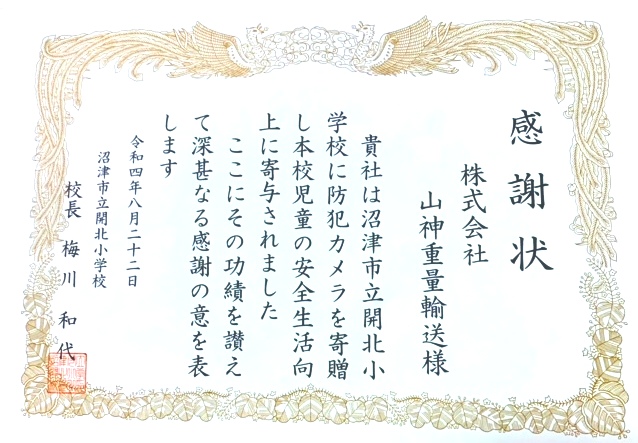 感謝状
株式会社
山神重量輸送様
貴社は沼津市立開北小
学校に防犯カメラを寄贈
し本校児童の安全生活向
上に寄与されました
ここにその功績を讃え
て深甚なる感謝の意を表
します
令和四年八月二十二日
沼津市立開北小学校
校長 梅川 和代